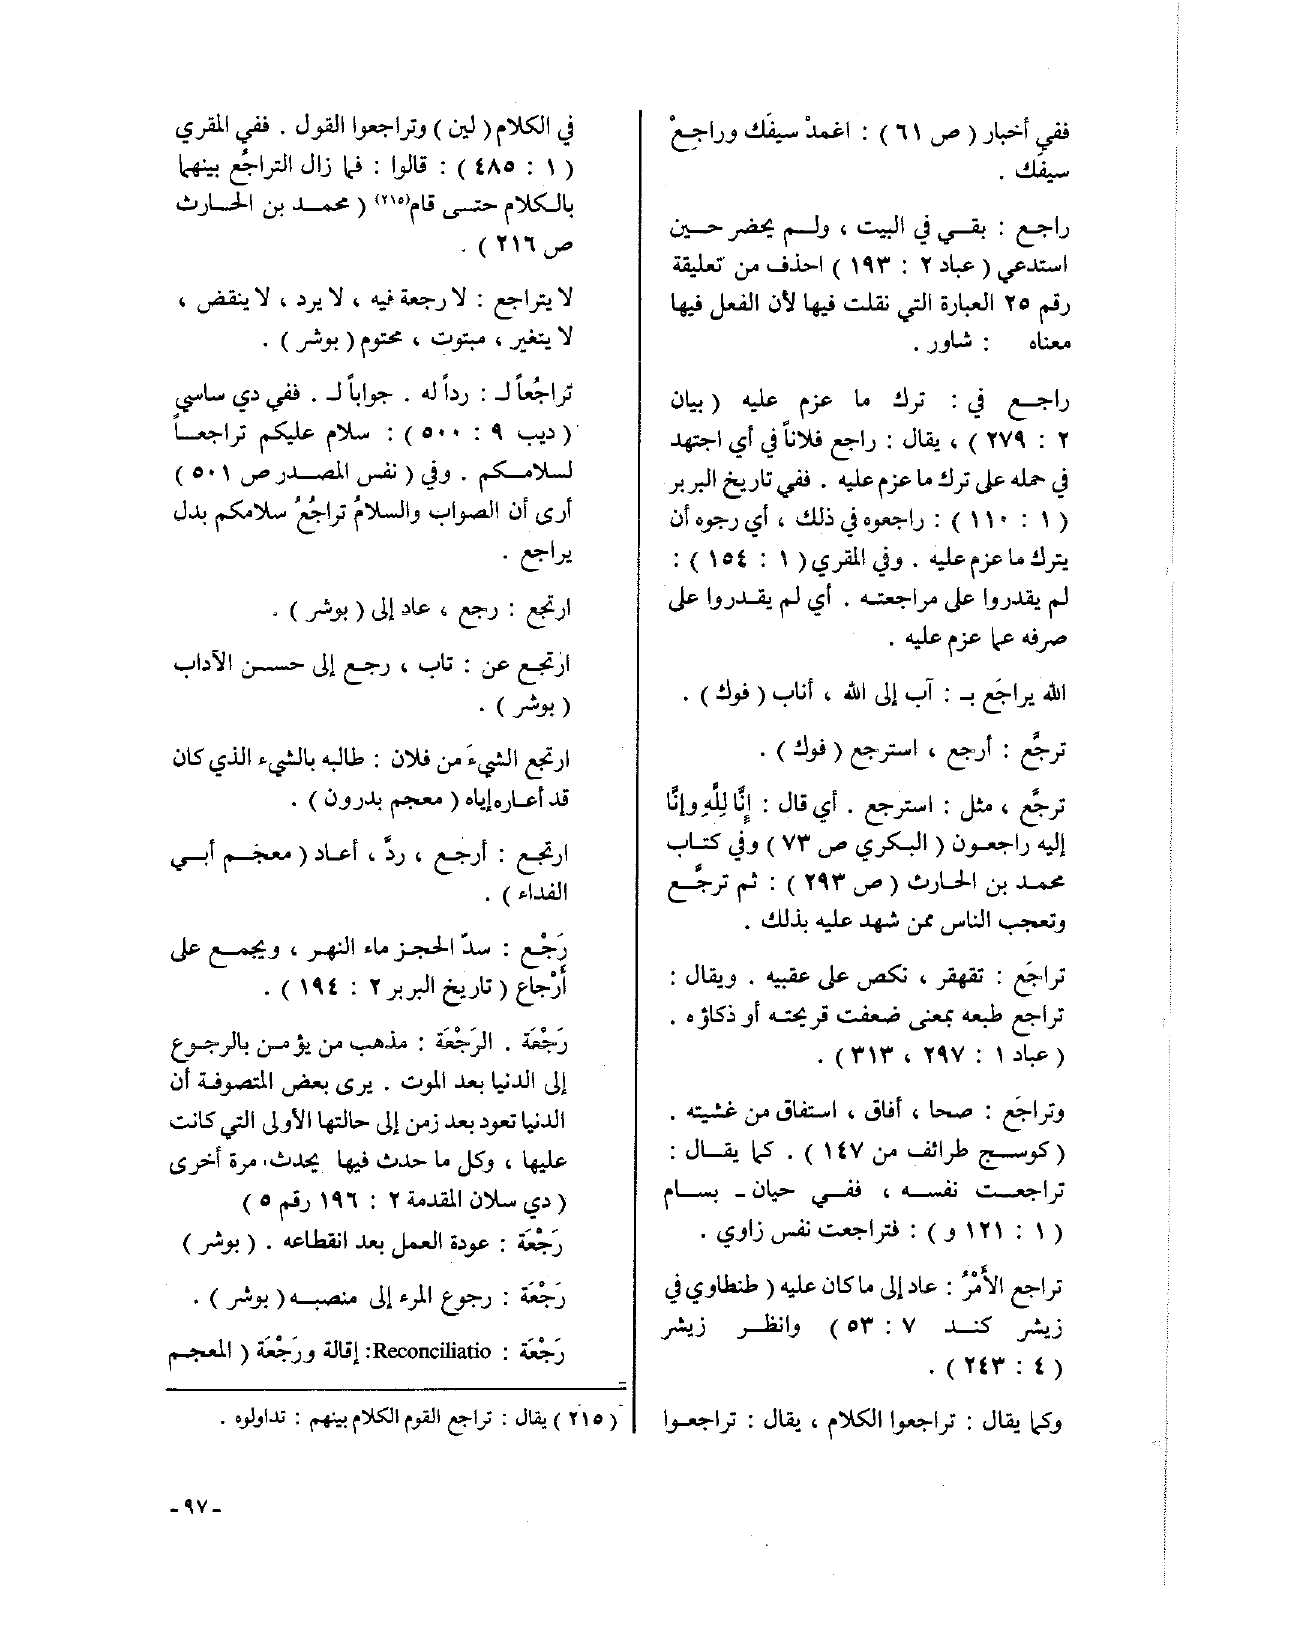 ففي أخبار ( ص ٦١ ) : اغمدْ سيفَك وراجعْ
سيفَك .
راجع : بقي في البيت ، ولم يحضر حين
استدعي ( عباد ٢ : ١٩٣ ) احذف من تعليقة
رقم ٢٥ العبارة التي نقلت فيها لأن الفعل فيها
معناه : شاور .
راجع في : ترك ما عزم عليه ( بيان
٢ : ٢٧٩ ) ، يقال : راجع فلاناً في أي اجتهد
في حمله على ترك ما عزم عليه . ففي تاريخ البربر
( ١ : ١١٠ ) : راجعوه في ذلك ، أي رجوه أن
يترك ما عزم عليه . وفي المقري ( ١ : ١٥٤ ) :
لم يقدروا على مراجعته . أي لم يقدروا على
صرفه عما عزم عليه .
الله يراجَع بـ : آب إلى الله ، أناب ( فوك ) .
ترجَّع : أرجع ، استرجع ( فوك ) .
ترجَّع ، مثل : استرجع . أي قال : إنَّا لِلَّهِ وإنَّا
إليه راجعون ( البكري ص ٧٣ ) وفي كتاب
محمد بن الحارث ( ص ٢٩٣ ) : ثم ترجَّع
وتعجب الناس ممن شهد عليه بذلك .
تراجَع : تقهقر ، نكص على عقبيه . ويقال :
تراجع طبعه بمعنى ضعفت قريحته أو ذكاؤه .
( عباد ١ : ٢٩٧ ، ٣١٣ ) .
وتراجَع : صحا ، أفاق ، استفاق من غشيته .
( كوسج طرائف من ١٤٧ ) . كما يقال :
تراجعت نفسه ، ففي حيان ـ بسام
( ١ : ١٢١ و ) : فتراجعت نفس زاوي .
تراجع الأَمْرُ : عاد إلى ما كان عليه ( طنطاوي في
زيشر كند ٧ : ٥٣ ) وانظر زيشر
( ٤ : ٢٤٣ ) .
وكما يقال : تراجعوا الكلام ، يقال : تراجعوا
في الكلام ( لين ) وتراجعوا القول . ففي المقري
( ١ : ٤٨٥ ) : قالوا : فما زال التراجُع بينهما
بالكلام حتى قام(٢١٥) ( محمد بن الحارث
ص ٢١٦ ) .
لا يتراجع : لا رجعة فيه ، لا يرد ، لا ينقض ،
لا يتغير ، مبتوت ، محتوم ( بوشر ) .
تراجُعاً لـ : رداً له . جواباً لـ . ففي دي ساسي
( ديب ٩ : ٥٠٠ ) : سلام عليكم تراجعاً
لسلامكم . وفي ( نفس المصدر ص ٥٠١ )
أرى أن الصواب والسلامُ تراجُعُ سلامكم بدل
يراجع .
ارتجع : رجع ، عاد إلى ( بوشر ) .
ارتجع عن : تاب ، رجع إلى حسن الآداب
( بوشر ) .
ارتجع الشيءَ من فلان : طالبه بالشيء الذي كان
قد أعاره إياه ( معجم بدرون ) .
ارتجع : أرجع ، ردَّ ، أعاد ( معجم أبي
الفداء ) .
رَجْع : سدّ الحجز ماء النهر ، ويجمع على
أَرْجاع ( تاريخ البربر ٢ : ١٩٤ ) .
رَجْعَة . الرَجْعَة : مذهب من يؤمن بالرجوع
إلى الدنيا بعد الموت . يرى بعض المتصوفة أن
الدنيا تعود بعد زمن إلى حالتها الأولى التي كانت
عليها ، وكل ما حدث فيها يحدث مرة أخرى
( دي سلان المقدمة ٢ : ١٩٦ رقم ٥ )
رَجْعَة : عودة العمل بعد انقطاعه . ( بوشر )
رَجْعَة : رجوع المرء إلى منصبه ( بوشر ) .
رَجْعَة : Reconciliatio: إقالة ورَجْعَة ( المعجم
( ٢١٥ ) يقال : تراجع القوم الكلام بينهم : تداولوه .
ـ ٩٧ ـ